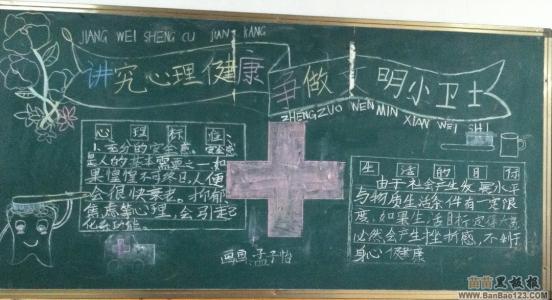 JIANG WEI SHENG CU JIAN KANG
讲究心理健康
争做文明小卫士
ZHENGZUO WEN MIN XIAN WEI SHI
心理标
1.充分的安全感,安全感
是人的基本需要之一如
果惶惶不可终日,人便
会很快衰老。抑郁
焦虑等心理,会引起
生活的目标
由于社会产生发展水平
与物质生活条件有一定限
度,如果生活目标定
必然会产生挫折感,不利于
身心健康
画画:孟子怡
苗苗黑板报
www.BanBao123.com